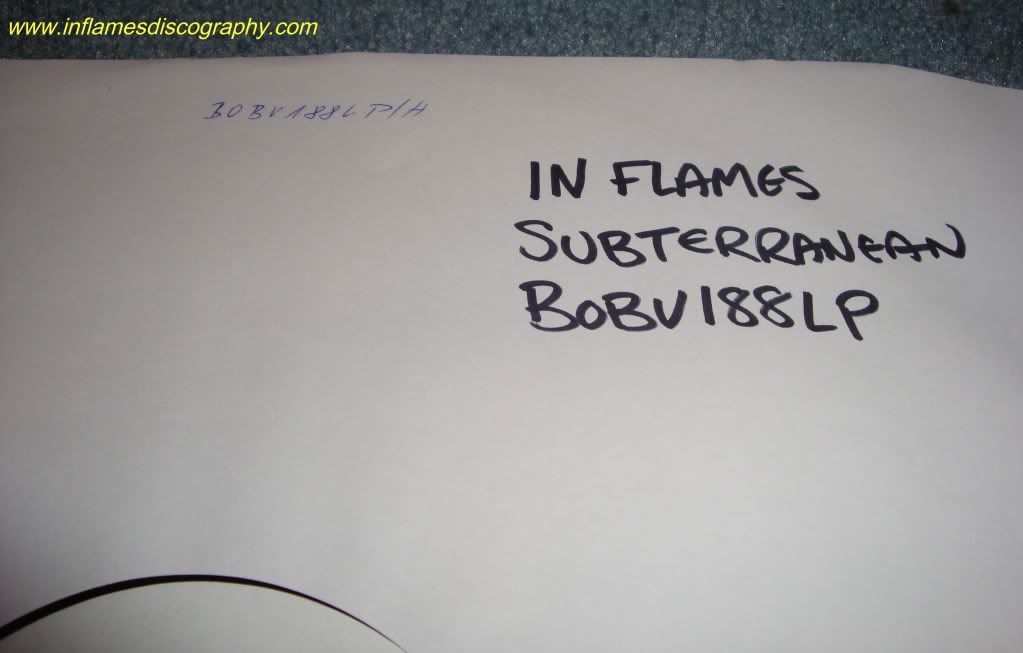 www.inflamesdiscography.com
BOBV188LP/H
IN FLAMES
SUBTERRANEAN
BOBV188LP